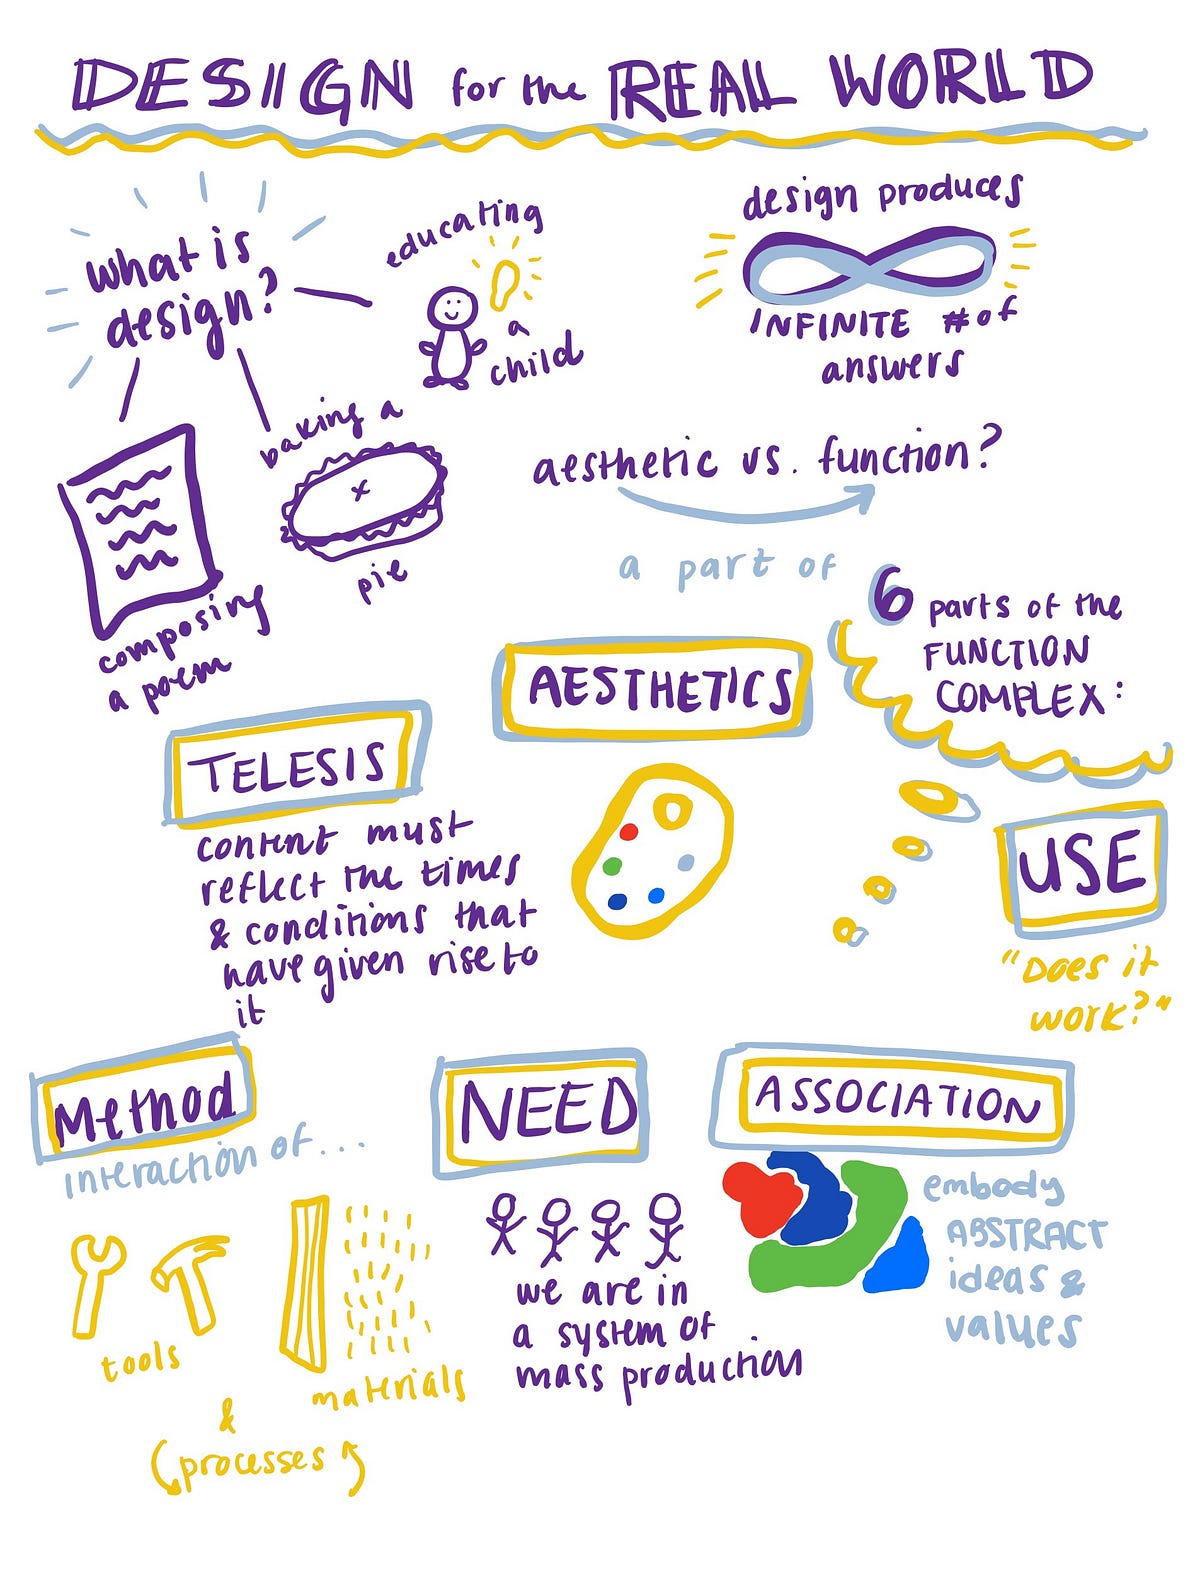 DESIGN for the REAL WORLD
what is
design?
educating
a
child
baking a
pie
composing
a poem
design produces
INFINITE # of
answers
aesthetic vs. function?
a part of
6 parts of the
FUNCTION
COMPLEX:
AESTHETICS
TELESIS
content must
reflect the times
& conditions that
have given rise to
it
USE
"Does it
work?"
Method
interaction of...
tools
materials
&
processes
NEED
we are in
a system of
mass production
ASSOCIATION
embody
ABSTRACT
ideas &
values